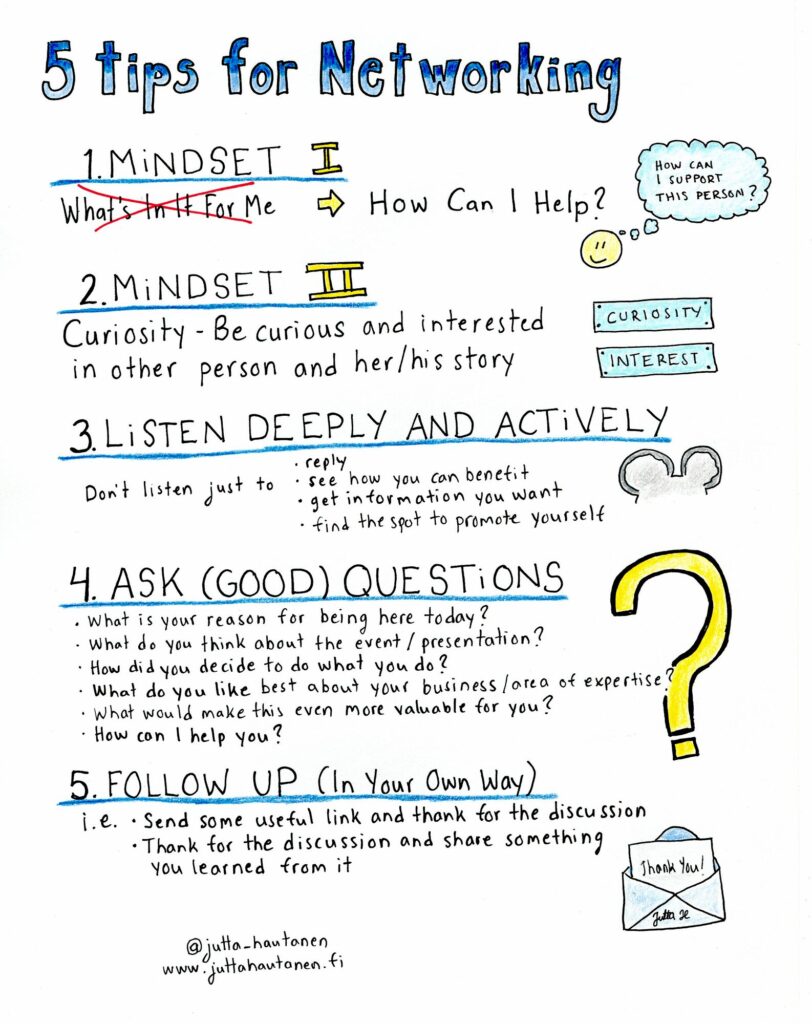 5 tips for Networking
1. MiNDSET I
What's In It For Me ⇨ How Can I Help?
HOW CAN
I SUPPORT
THIS PERSON?
2. MiNDSET II
Curiosity - Be curious and interested
in other person and her/his story
CURIOSITY
INTEREST
3. LiSTEN DEEPLY AND ACTiVELY
Don't listen just to
· reply
· see how you can benefit
· get information you want
· find the spot to promote yourself
4. ASK (GOOD) QUESTiONS
· What is your reason for being here today?
· What do you think about the event / presentation?
· How did you decide to do what you do?
· What do you like best about your business/area of expertise?
· What would make this even more valuable for you?
· How can I help you?
?
5. FOLLOW UP (In Your Own Way)
i.e. · Send some useful link and thank for the discussion
· Thank for the discussion and share something
you learned from it
Thank You!
Jutta H
@jutta_hautanen
www.juttahautanen.fi